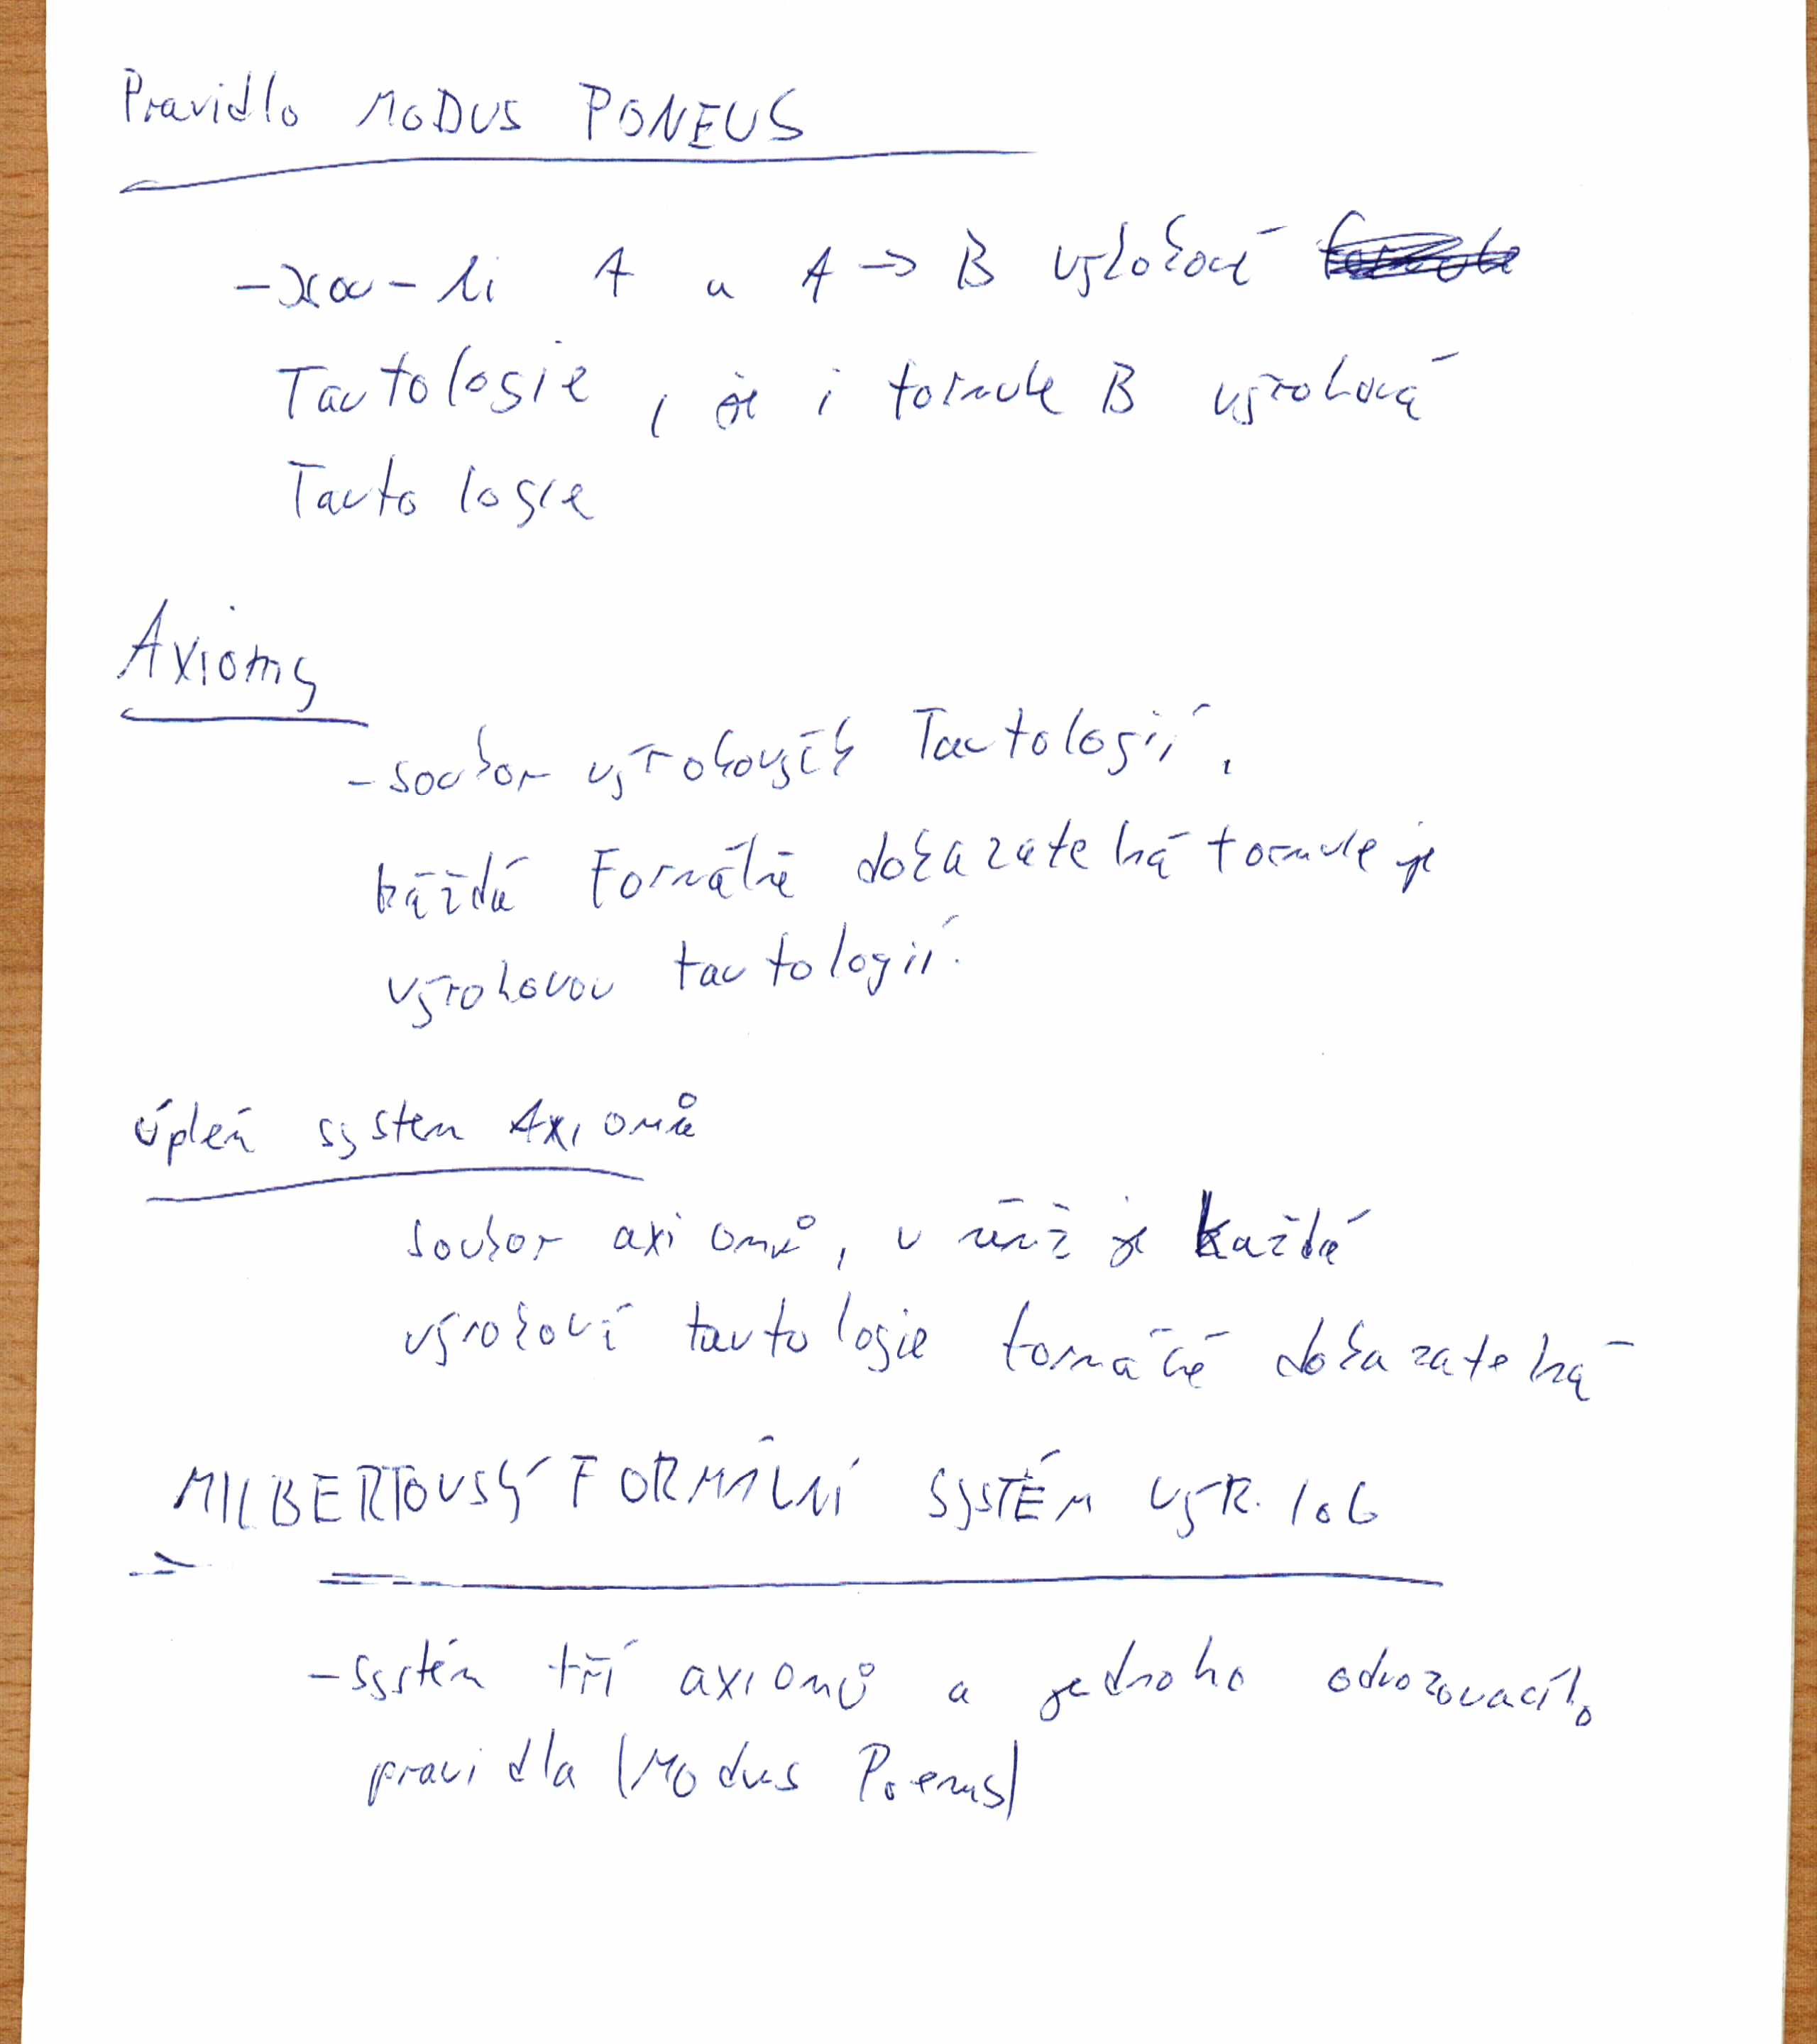 Pravidlo MODUS PONEUS
-Jsou-li A a A → B výrokové
Tautologie, je i formule B výroková
Tautologie
Axiomy
-soubor výrokových Tautologií,
každá Formálně dokazatelná formule je
výrokovou tautologií.
úplný systém Axiomů
soubor axiomů, v němž je každá
výroková tautologie formálně dokazatelná
HILBERTOVSKÝ FORMÁLNÍ SYSTÉM VÝR. LOG
-systém tří axiomů a jednoho odvozovacího
pravidla (Modus Poenus)